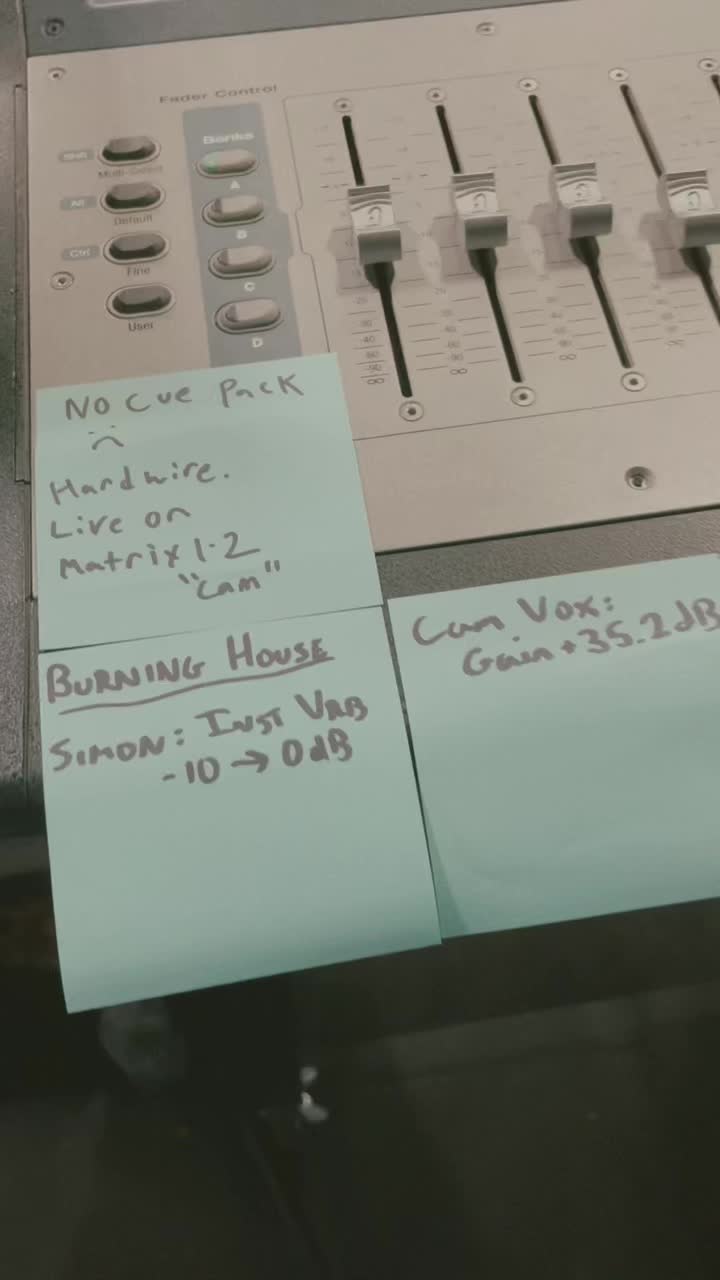 Fader Control
Banks
Shift
Multi-Select
A
Alt
Default
B
Ctrl
Fine
C
User
D
No Cue Pack
Hardwire.
Live on
Matrix 1-2
"Cam"
Cam Vox:
Gain +35.2dB
BURNING HOUSE
SIMON: INST VRB
-10 → 0dB